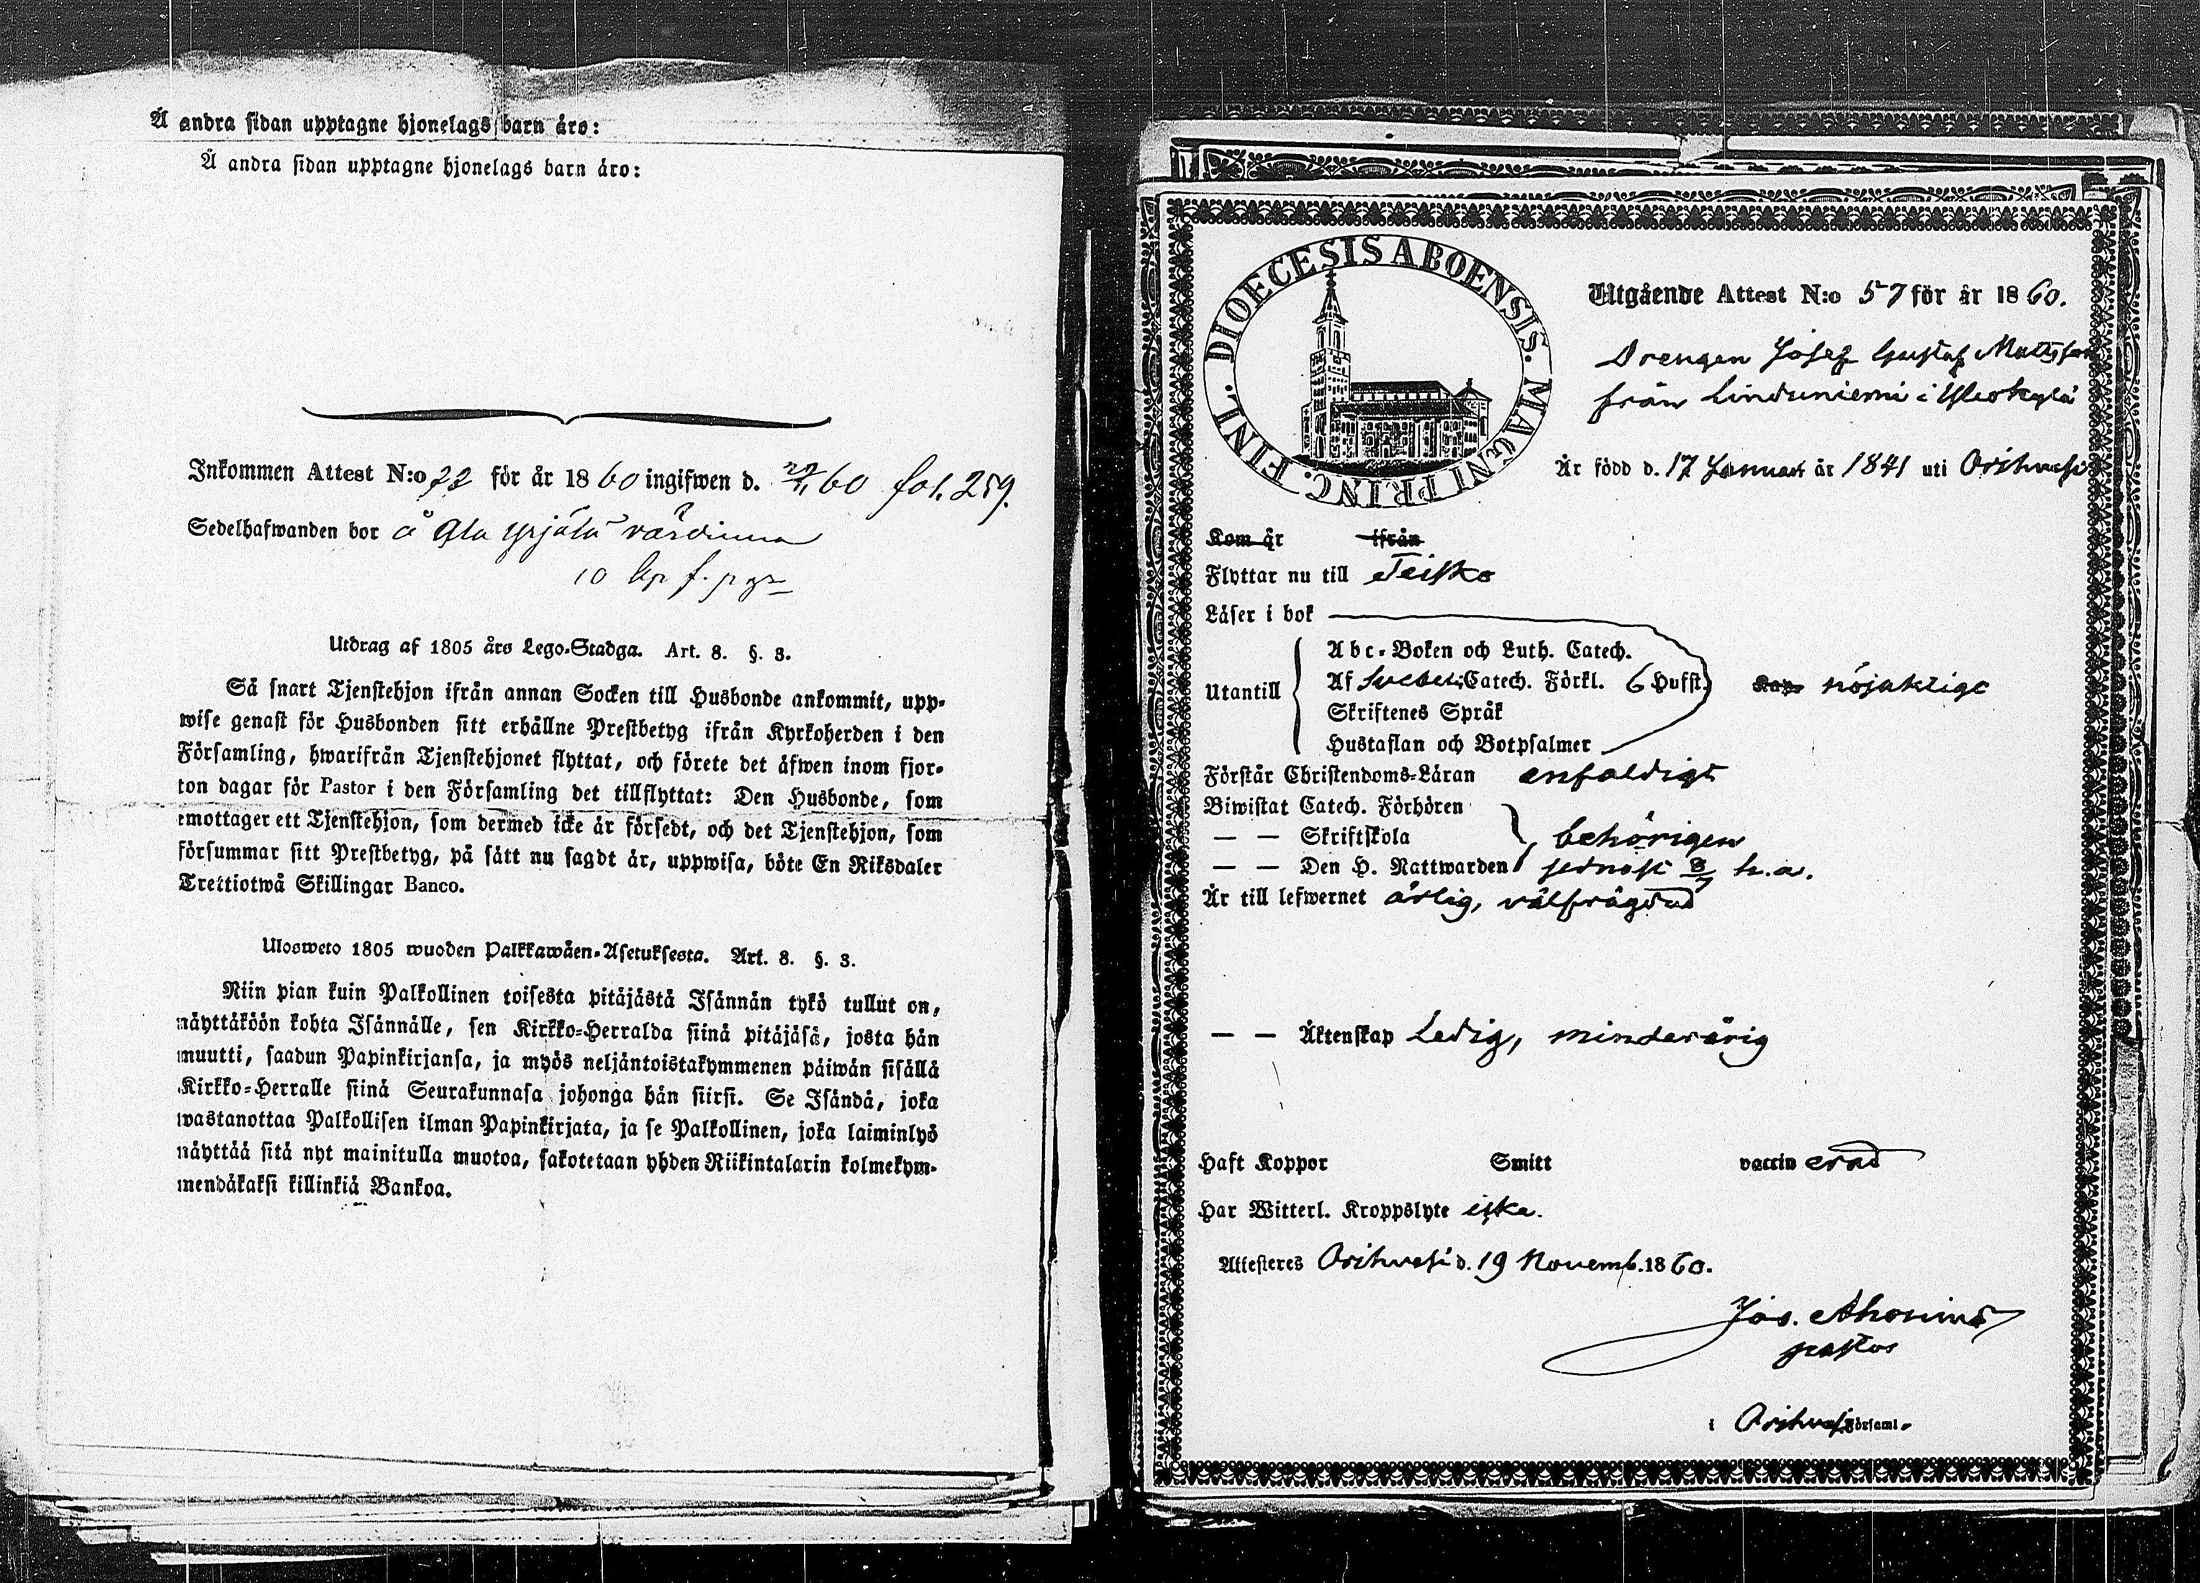 Å andra sidan upptagne hjonelags barn äro:
Å andra sidan upptagne hjonelags barn äro:
Inkommen Attest N:o 22 för år 1860 ingifwen d. 60 fol. 259.
Sedelhafwanden bor å Yla värdinna
10
Utdrag af 1805 års Lego-Stadga. Art. 8. §. 3.
Så snart Tjenstehjon ifrån annan Socken till Husbonde ankommit, upp-
wise genast för Husbonden sitt erhållne Prestbetyg ifrån Kyrkoherden i den
Församling, hwarifrån Tjenstehjonet flyttat, och förete det äfwen inom fjor-
ton dagar för Pastor i den Församling det tillflyttat: Den Husbonde, som
emottager ett Tjenstehjon, som dermed icke är försedt, och det Tjenstehjon, som
försummar sitt Prestbetyg, på sätt nu sagdt är, uppwisa, böte En Riksdaler
Trettiotwå Skillingar Banco.
Ulosweto 1805 wuoden Palkkawäen-Asetuksesta. Art. 8. §. 3.
Niin pian kuin Palkollinen toisesta pitäjästä Isännän tykö tullut on,
näyttäköön kohta Isännälle, sen Kirkko-Herralda siinä pitäjäsä, josta hän
muutti, saadun Papinkirjansa, ja myös neljäntoistakymmenen päiwän sisällä
Kirkko-Herralle siinä Seurakunnasa johonga hän siirsi. Se Isändä, joka
wastanottaa Palkollisen ilman Papinkirjata, ja se Palkollinen, joka laiminlyö
näyttää sitä nyt mainitulla muotoa, sakotetaan yhden Riikintalarin kolmekym-
mendäkaksi killinkiä Bankoa.
DIOECESIS ABOENSIS. MAGNI PRINC. FINL.
Utgående Attest N:o 57 för år 1860.
Drengen Josef Gustaf Mattsson
från Linduniemi i Yleskylä
Är född d. 17 Januari år 1841 uti Orihvesi
Kom år ifrån
Flyttar nu till Teisko
Läser i bok
Utantill
Abc-Boken och Luth. Catech.
Af Svebeli Catech. Förkl. 6 Hufst. nöjaktigt
Skriftenes Språk
Hustaflan och Botpsalmer
Förstår Christendoms-Läran enfaldigt
Biwistat Catech. Förhören
— — Skriftskola behörigen
— — Den H. Nattwarden sednast 8/7 h.a.
Är till lefwernet ärlig, välfrägdad
— — Äktenskap Ledig, minderårig
Haft Koppor Smitt vaccinerad
Har Witterl. Kroppslyte icke.
Attesteres Orihvesi d. 19 Novemb. 1860.
Jos. Ahonius
pastor
i Orihvesi Församl.